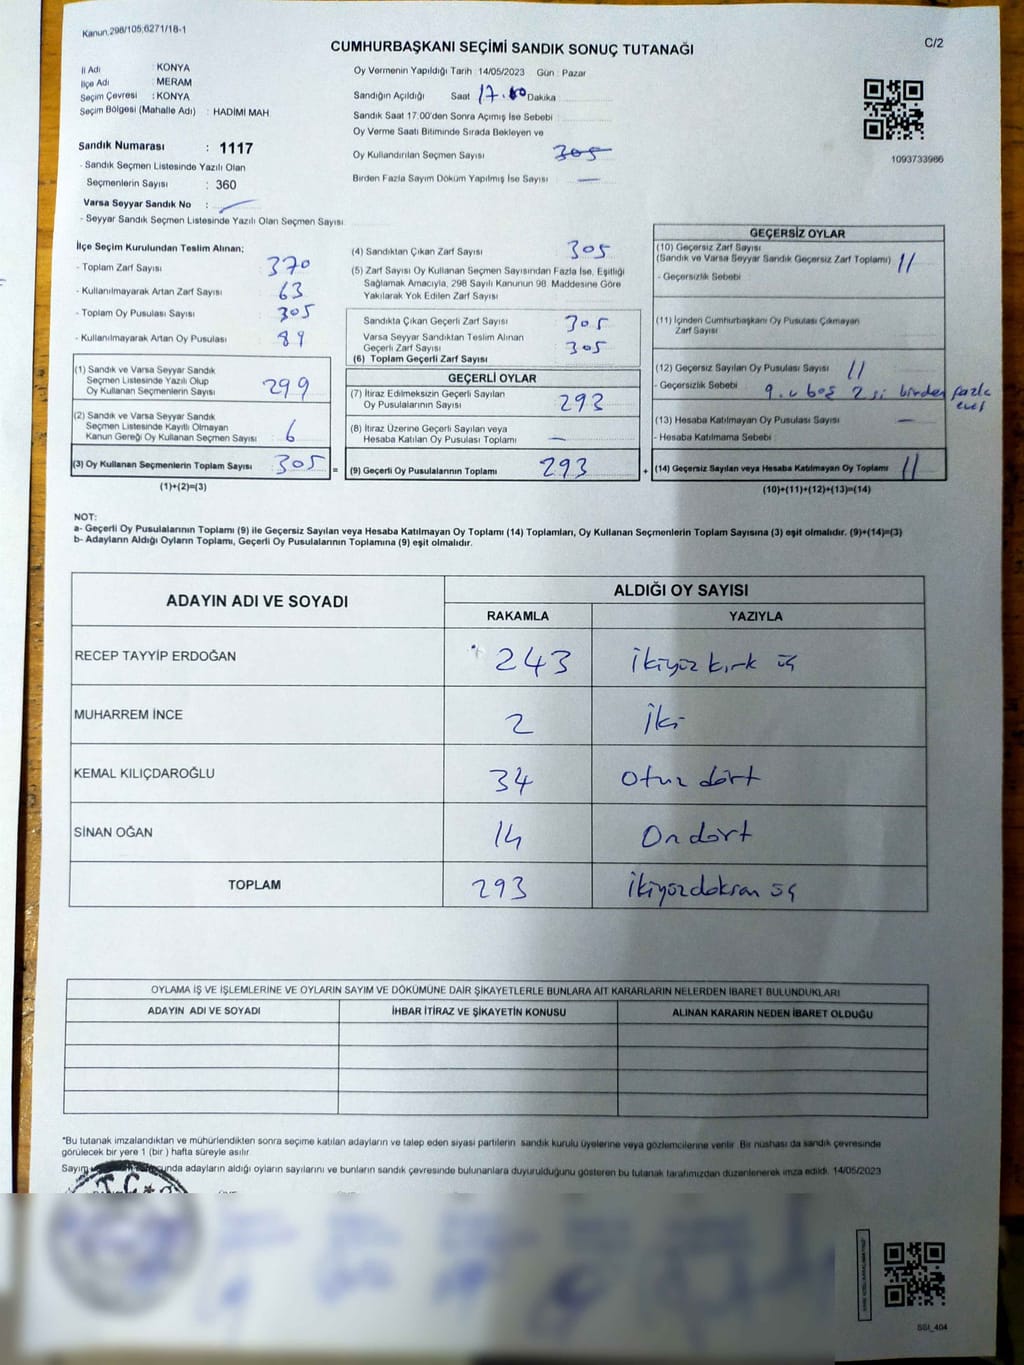 Kanun 298/105,6271/18-1
CUMHURBAŞKANI SEÇİMİ SANDIK SONUÇ TUTANAĞI
C/2
İl Adı : KONYA
İlçe Adı : MERAM
Seçim Çevresi : KONYA
Seçim Bölgesi (Mahalle Adı) : HADİMİ MAH
Sandık Numarası : 1117
- Sandık Seçmen Listesinde Yazılı Olan
Seçmenlerin Sayısı : 360
Varsa Seyyar Sandık No :
- Seyyar Sandık Seçmen Listesinde Yazılı Olan Seçmen Sayısı
Oy Vermenin Yapıldığı Tarih : 14/05/2023 Gün : Pazar
Sandığın Açıldığı Saat 17.00 Dakika
Sandık Saat 17:00'den Sonra Açımış İse Sebebi :
Oy Verme Saati Bitiminde Sırada Bekleyen ve
Oy Kullandırılan Seçmen Sayısı 305
Birden Fazla Sayım Döküm Yapılmış İse Sayısı —
1093733966
İlçe Seçim Kurulundan Teslim Alınan;
- Toplam Zarf Sayısı 370
- Kullanılmayarak Artan Zarf Sayısı 63
- Toplam Oy Pusulası Sayısı 305
- Kullanılmayarak Artan Oy Pusulası
(1) Sandık ve Varsa Seyyar Sandık
Seçmen Listesinde Yazılı Olup
Oy Kullanan Seçmenlerin Sayısı 299
(2) Sandık ve Varsa Seyyar Sandık
Seçmen Listesinde Kayıtlı Olmayan
Kanun Gereği Oy Kullanan Seçmen Sayısı 6
(3) Oy Kullanan Seçmenlerin Toplam Sayısı 305 =
(1)+(2)=(3)
(4) Sandıktan Çıkan Zarf Sayısı 305
(5) Zarf Sayısı Oy Kullanan Seçmen Sayısından Fazla İse, Eşitliği
Sağlamak Amacıyla, 298 Sayılı Kanunun 98. Maddesine Göre
Yakılarak Yok Edilen Zarf Sayısı
Sandıkta Çıkan Geçerli Zarf Sayısı 305
Varsa Seyyar Sandıktan Teslim Alınan
Geçerli Zarf Sayısı 305
(6) Toplam Geçerli Zarf Sayısı
GEÇERLİ OYLAR
(7) İtiraz Edilmeksizin Geçerli Sayılan
Oy Pusulalarının Sayısı 293
(8) İtiraz Üzerine Geçerli Sayılan veya
Hesaba Katılan Oy Pusulası Toplamı —
(9) Geçerli Oy Pusulalarının Toplamı 293 +
GEÇERSİZ OYLAR
(10) Geçersiz Zarf Sayısı
(Sandık ve Varsa Seyyar Sandık Geçersiz Zarf Toplamı) 11
- Geçersizlik Sebebi :
(11) İçinden Cumhurbaşkanı Oy Pusulası Çıkmayan
Zarf Sayısı
(12) Geçersiz Sayılan Oy Pusulası Sayısı 11
- Geçersizlik Sebebi 9.u boş 2 si birden fazla
evet
(13) Hesaba Katılmayan Oy Pusulası Sayısı —
- Hesaba Katılmama Sebebi :
(14) Geçersiz Sayılan veya Hesaba Katılmayan Oy Toplamı 11
(10)+(11)+(12)+(13)=(14)
NOT:
a- Geçerli Oy Pusulalarının Toplamı (9) ile Geçersiz Sayılan veya Hesaba Katılmayan Oy Toplamı (14) Toplamları, Oy Kullanan Seçmenlerin Toplam Sayısına (3) eşit olmalıdır. (9)+(14)=(3)
b- Adayların Aldığı Oyların Toplamı, Geçerli Oy Pusulalarının Toplamına (9) eşit olmalıdır.
ADAYIN ADI VE SOYADI
ALDIĞI OY SAYISI
RAKAMLA YAZIYLA
RECEP TAYYİP ERDOĞAN 243 ikiyüz kırk üç
MUHARREM İNCE 2 iki
KEMAL KILIÇDAROĞLU 34 otuz dört
SİNAN OĞAN 14 On dört
TOPLAM 293 ikiyüzdoksan üç
OYLAMA İŞ VE İŞLEMLERİNE VE OYLARIN SAYIM VE DÖKÜMÜNE DAİR ŞİKAYETLERLE BUNLARA AİT KARARLARIN NELERDEN İBARET BULUNDUKLARI
ADAYIN ADI VE SOYADI İHBAR İTİRAZ VE ŞİKAYETİN KONUSU ALINAN KARARIN NEDEN İBARET OLDUĞU
*Bu tutanak imzalandıktan ve mühürlendikten sonra seçime katılan adayların ve talep eden siyasi partilerin sandık kurulu üyelerine veya gözlemcilerine verilir. Bir nüshası da sandık çevresinde
görülecek bir yere 1 (bir ) hafta süreyle asılır.
Sayım sonucunda adayların aldığı oyların sayılarını ve bunların sandık çevresinde bulunanlara duyurulduğunu gösteren bu tutanak tarafımızdan düzenlenerek imza edildi. 14/05/2023
T.C.
SSI_404